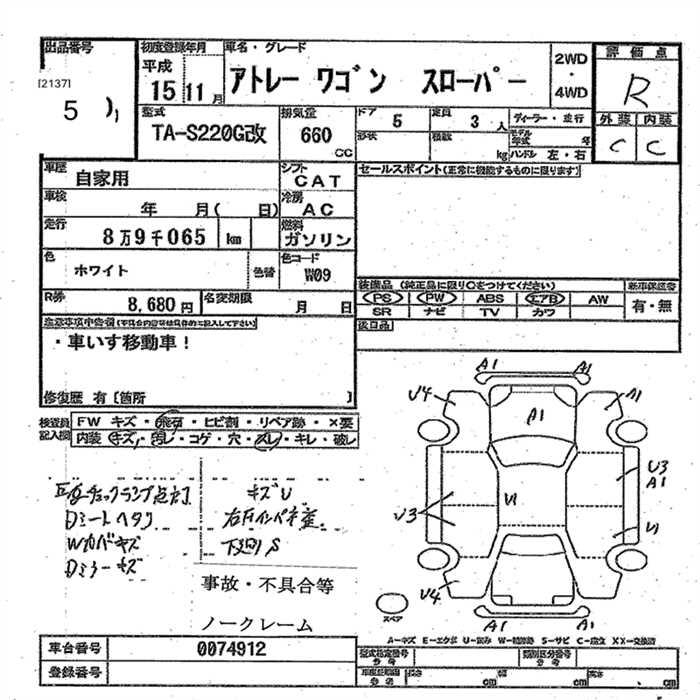 出品番号
[2137]
5
初度登録年月
平成
15 11月
車名・グレード
アトレー ワゴン スローパー
2WD
・
4WD
評価点
R
外装 内装
C C
型式
TA-S220G改
排気量
660
CC
ドア
5
定員
3 人
形状
積載
kg
ディーラー・並行
モデル年式 年
ハンドル 左・右
車歴
自家用
シフト
CAT
車検
年 月( 日)
冷房
AC
走行
8万9千065 km
燃料
ガソリン
色
ホワイト
色替
色コード
W09
R券
8,680円
名変期限
月 日
セールスポイント(正常に機能するものに限ります)
装備品 (純正品に限り○をつけてください)
PS PW ABS エアB AW
SR ナビ TV カワ
新車保証書
有・無
後日品
注意事項申告欄(不具合内容は具体的に記入して下さい)
・車いす移動車!
修復歴 有〔箇所 〕
検査員記入欄
FW キズ・飛石・ヒビ割・リペア跡・×要
内装 キズ・汚レ・コゲ・穴・スレ・キレ・破レ
チェックランプ点灯
Dシートヘタリ
Wカバキズ
Dミラーキズ
キズU
下回りS
事故・不具合等
ノークレーム
A1 A1
U4 A1
A1
U3
A1
U3
U1
U1
U4
A1 A1
スペア
A-キズ E-エクボ U-凹み W-補修跡 S-サビ C-腐食 XX-交換済
車台番号
0074912
登録番号
型式指定番号
参考
類別区分番号
参考
車庫証明用
参考
長さ cm
幅 cm
高さ cm